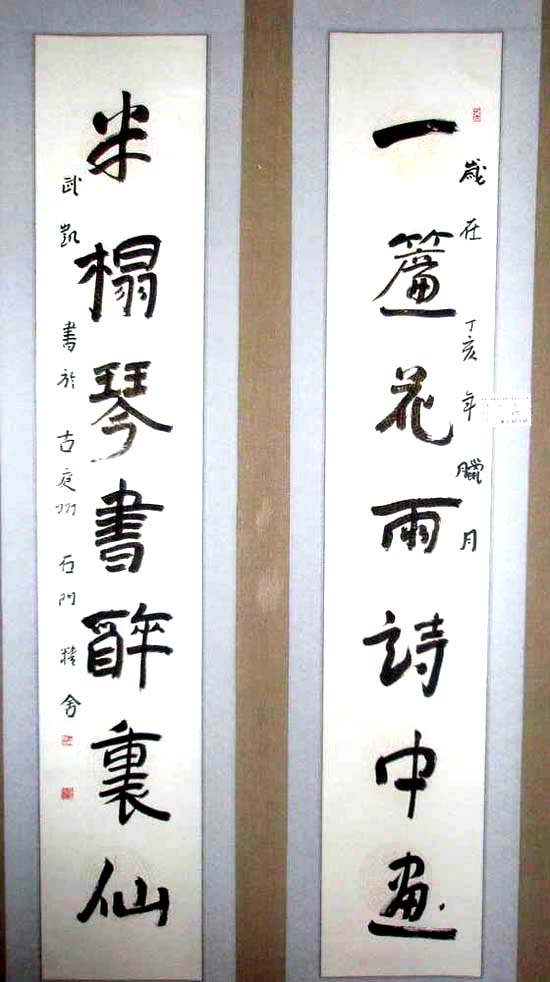 一簾花雨詩中畫
歲在丁亥年臘月
半榻琴書醉裏仙
武凱書於古庭州石門精舍